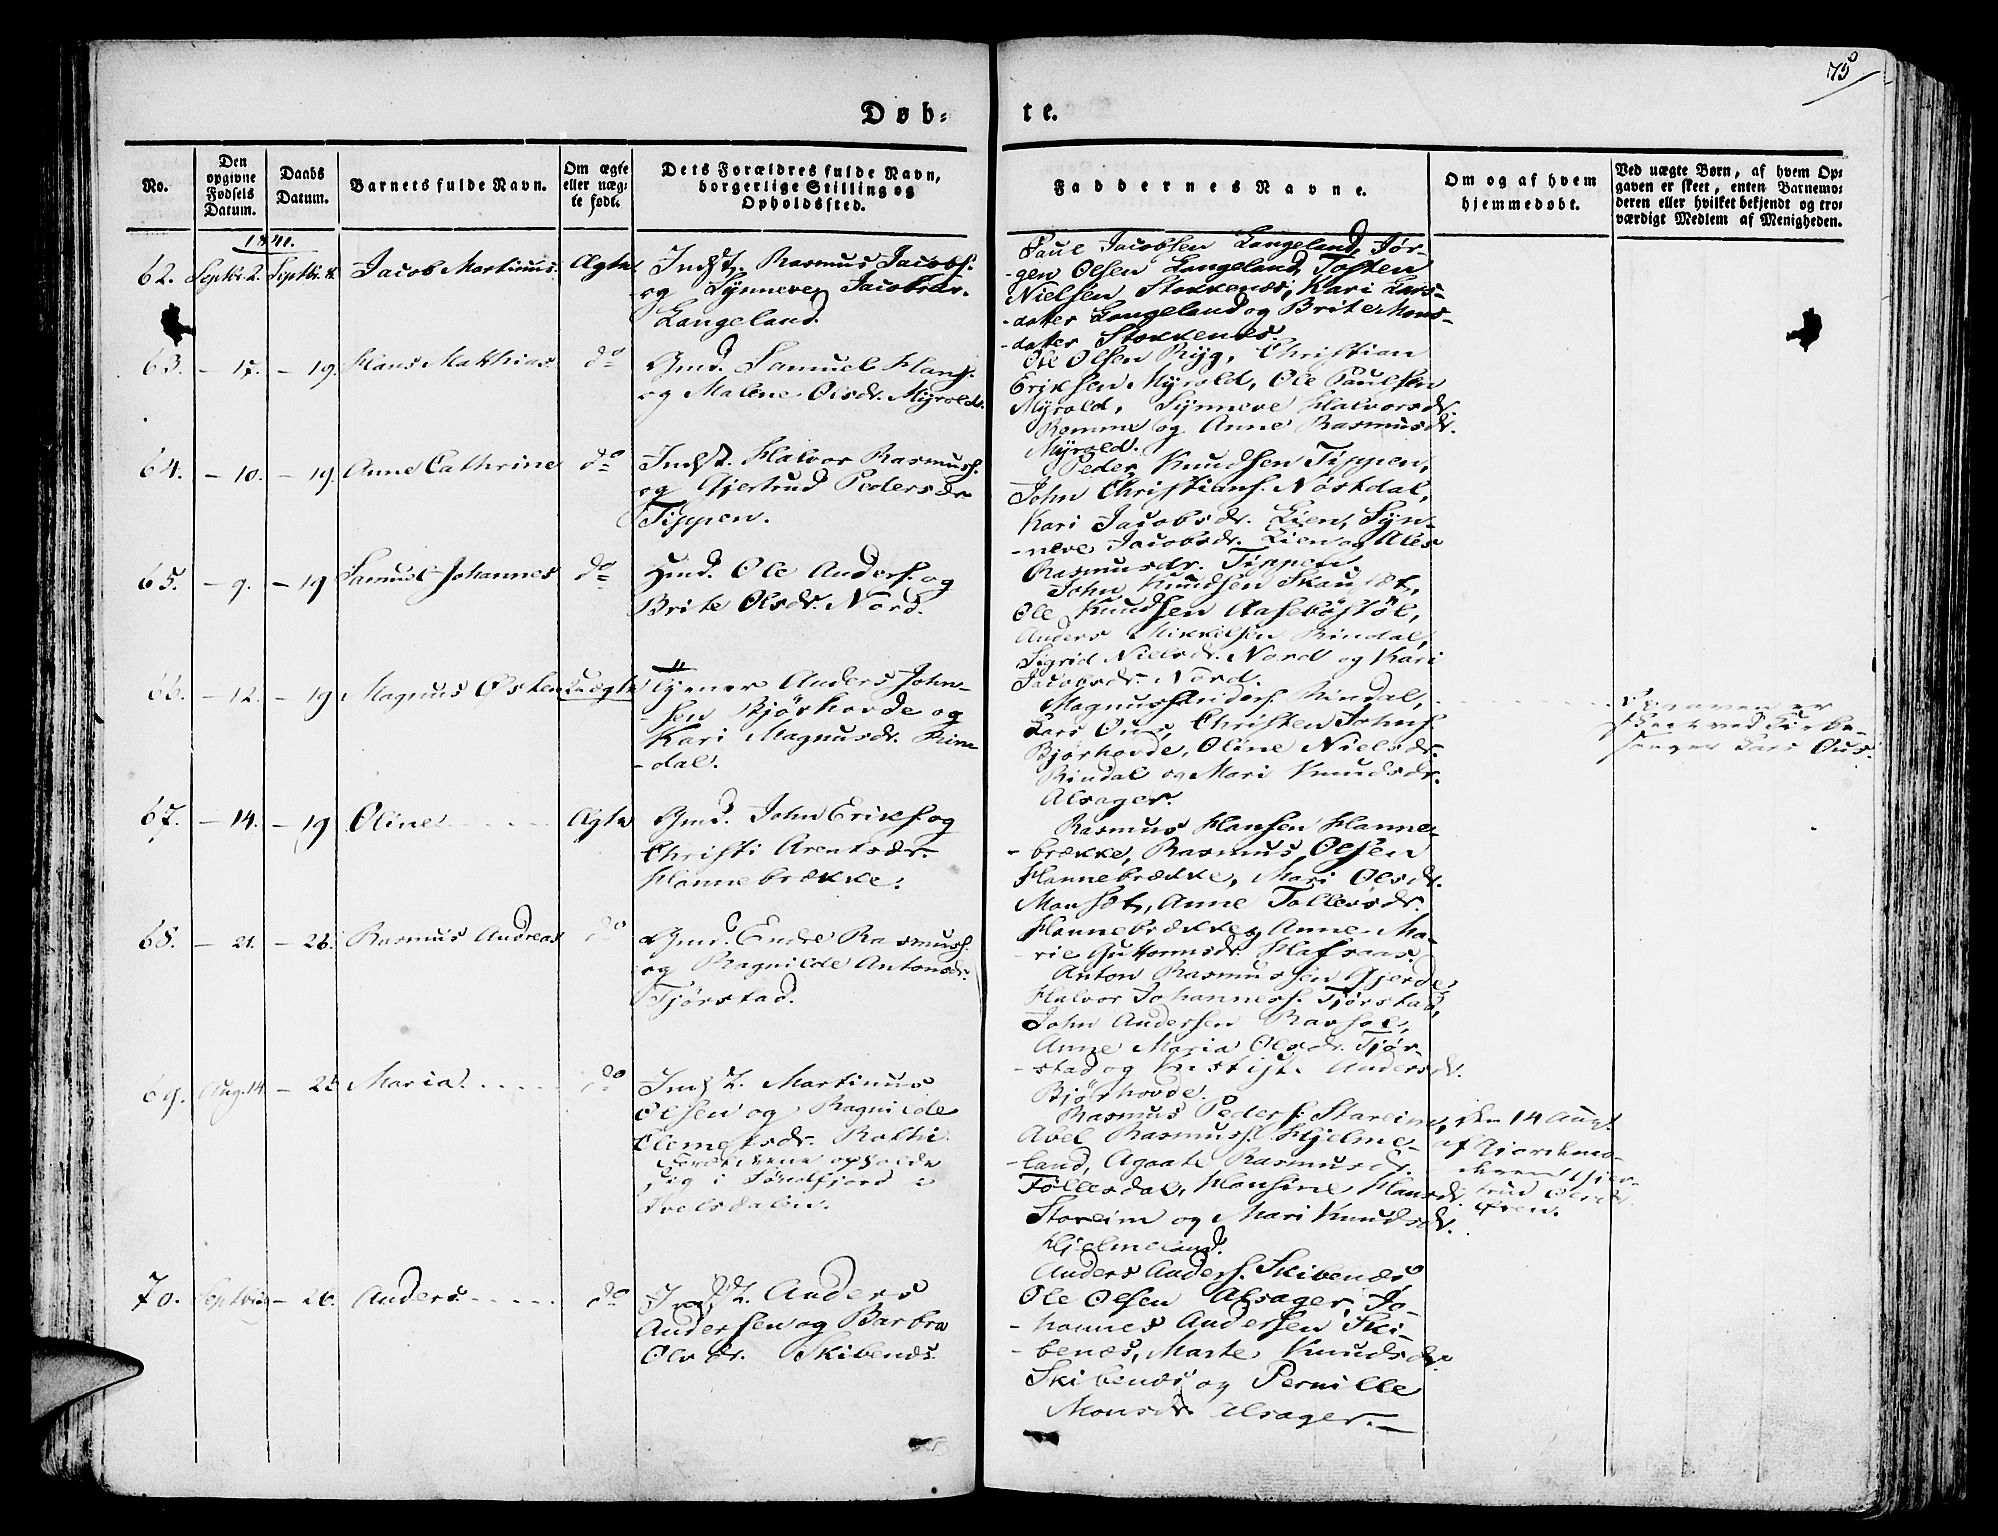 75
Døb-
te.
No.
Den opgivne Fødsels Datum.
Daabs Datum.
Barnets fulde Navn.
Om ægte eller uæg-te født.
Dets Forældres fulde Navn, borgerlige Stilling og Opholdssted.
Faddernes Navne.
Om og af hvem hjemmedøbt.
Ved uægte Børn, af hvem Op-gaven er skeet, enten Barnemo-deren eller hvilket bekjendt og tro-værdigt Medlem af Menigheden.
1841.
62. Septbr. 2. Septbr. Jacob Martinus. Ægte
Indst. Rasmus Jacobs.
og Synneve Jacobsdr.
Langeland.
Paul Jacobsen Langeland, Jør-
gen Olsen Langeland, Tosten
Nielsen Stokkenæs, Kari Lars-
datter Langeland og Brite Mons-
datter Stokkenæs.
63. - 17. - 19. Hans Mathias. do
Gmd. Samuel Hans.
og Malene Olsdr. Myrold.
Ole Olsen Ryg, Christian
Eriksen Myrold, Ole Paulsen
Myrold, Synneve Halvorsdr.
Romme og Anne Rasmusdr.
Myrold.
64. - 10. - 19. Anne Cathrine do
Indst. Halvor Rasmuss.
og Gjertrud Pedersdr
Tippen.
Peder Knudsen Tippen,
John Christians. Nøstdal,
Kari Jacobsdr. Lien, Syn-
neve Jacobsdr. Lien og Ales
Rasmusdr. Tippen.
65. - 9. - 19 Samuel Johannes do
Hmd. Ole Anders. og
Brite Olsdr. Nord.
John Knudsen Skaul
Ole Knudsen Aasebøstøl,
Anders Mikkelsen Rindal,
Sigrid Nielsdr. Nord og Kari
Jacobsdr. Nord.
66. - 12. - 19 Magnus Østen Uægte
Tjener Anders John-
sen Bjørhovde og
Kari Magnusdr. Rin
dal.
Magnus Anders. Rindal,
Lars Ous, Christen Johns.
Bjørhovde, Oline Nielsdr.
Rindal og Mari Knudsdr.
Alsager.
Opgaven er
skeet ved Kirkesanger Lars Ous.
67. - 14. - 19 Oline Ægte
Gmd. John Eriks. og
Christi Arentsdr.
Hannebrække.
Rasmus Hansen Hanne-
brække, Rasmus Olsen
Hannebrække, Mari Olsdr.
Mons Anne Tollevsdr.
Hannebrække, Anne Ma-
rie Guttormsdr. Hafsaas.
68. - 21. - 26. Rasmus Andreas do
Gmd. Endre Rasmuss.
og Ragnilde Antonsdr.
Tjørstad.
Anton Rasmussen Gjerde,
Halvor Johanness. Tjørstad,
John Andersen
Anne Maria Olsdr. Tjør-
stad og Andersdr.
Bjørhovde.
69. Aug. 14 - 25. Maria. do
Indst. Martinus
Olsen og Ragnilde
Clemetsdr. Rothi
Forældrene opholde
sig i Søndfjord i
Rasmus Peders. Storeim,
Abel Rasmuss. Hjelme-
land, Agaate Rasmusdr.
Føllesdal, Hansine Hansdr.
Storeim og Mari Knudsdr.
Hjelmeland.
den 14 Aug.
af Gjordemo-
deren Gjer-
trud Olsdr
70. Septbr. - 26. Anders do
Indst. Anders
Andersen og Barbra
Olsdr. Skibenæs.
Anders Anders. Skibenæs
Ole Olsen Alsager, Jo-
hannes Andersen Ski-
benæs, Marte Knudsdr.
Skibenæs og Pernille
Monsdr. Alsager.